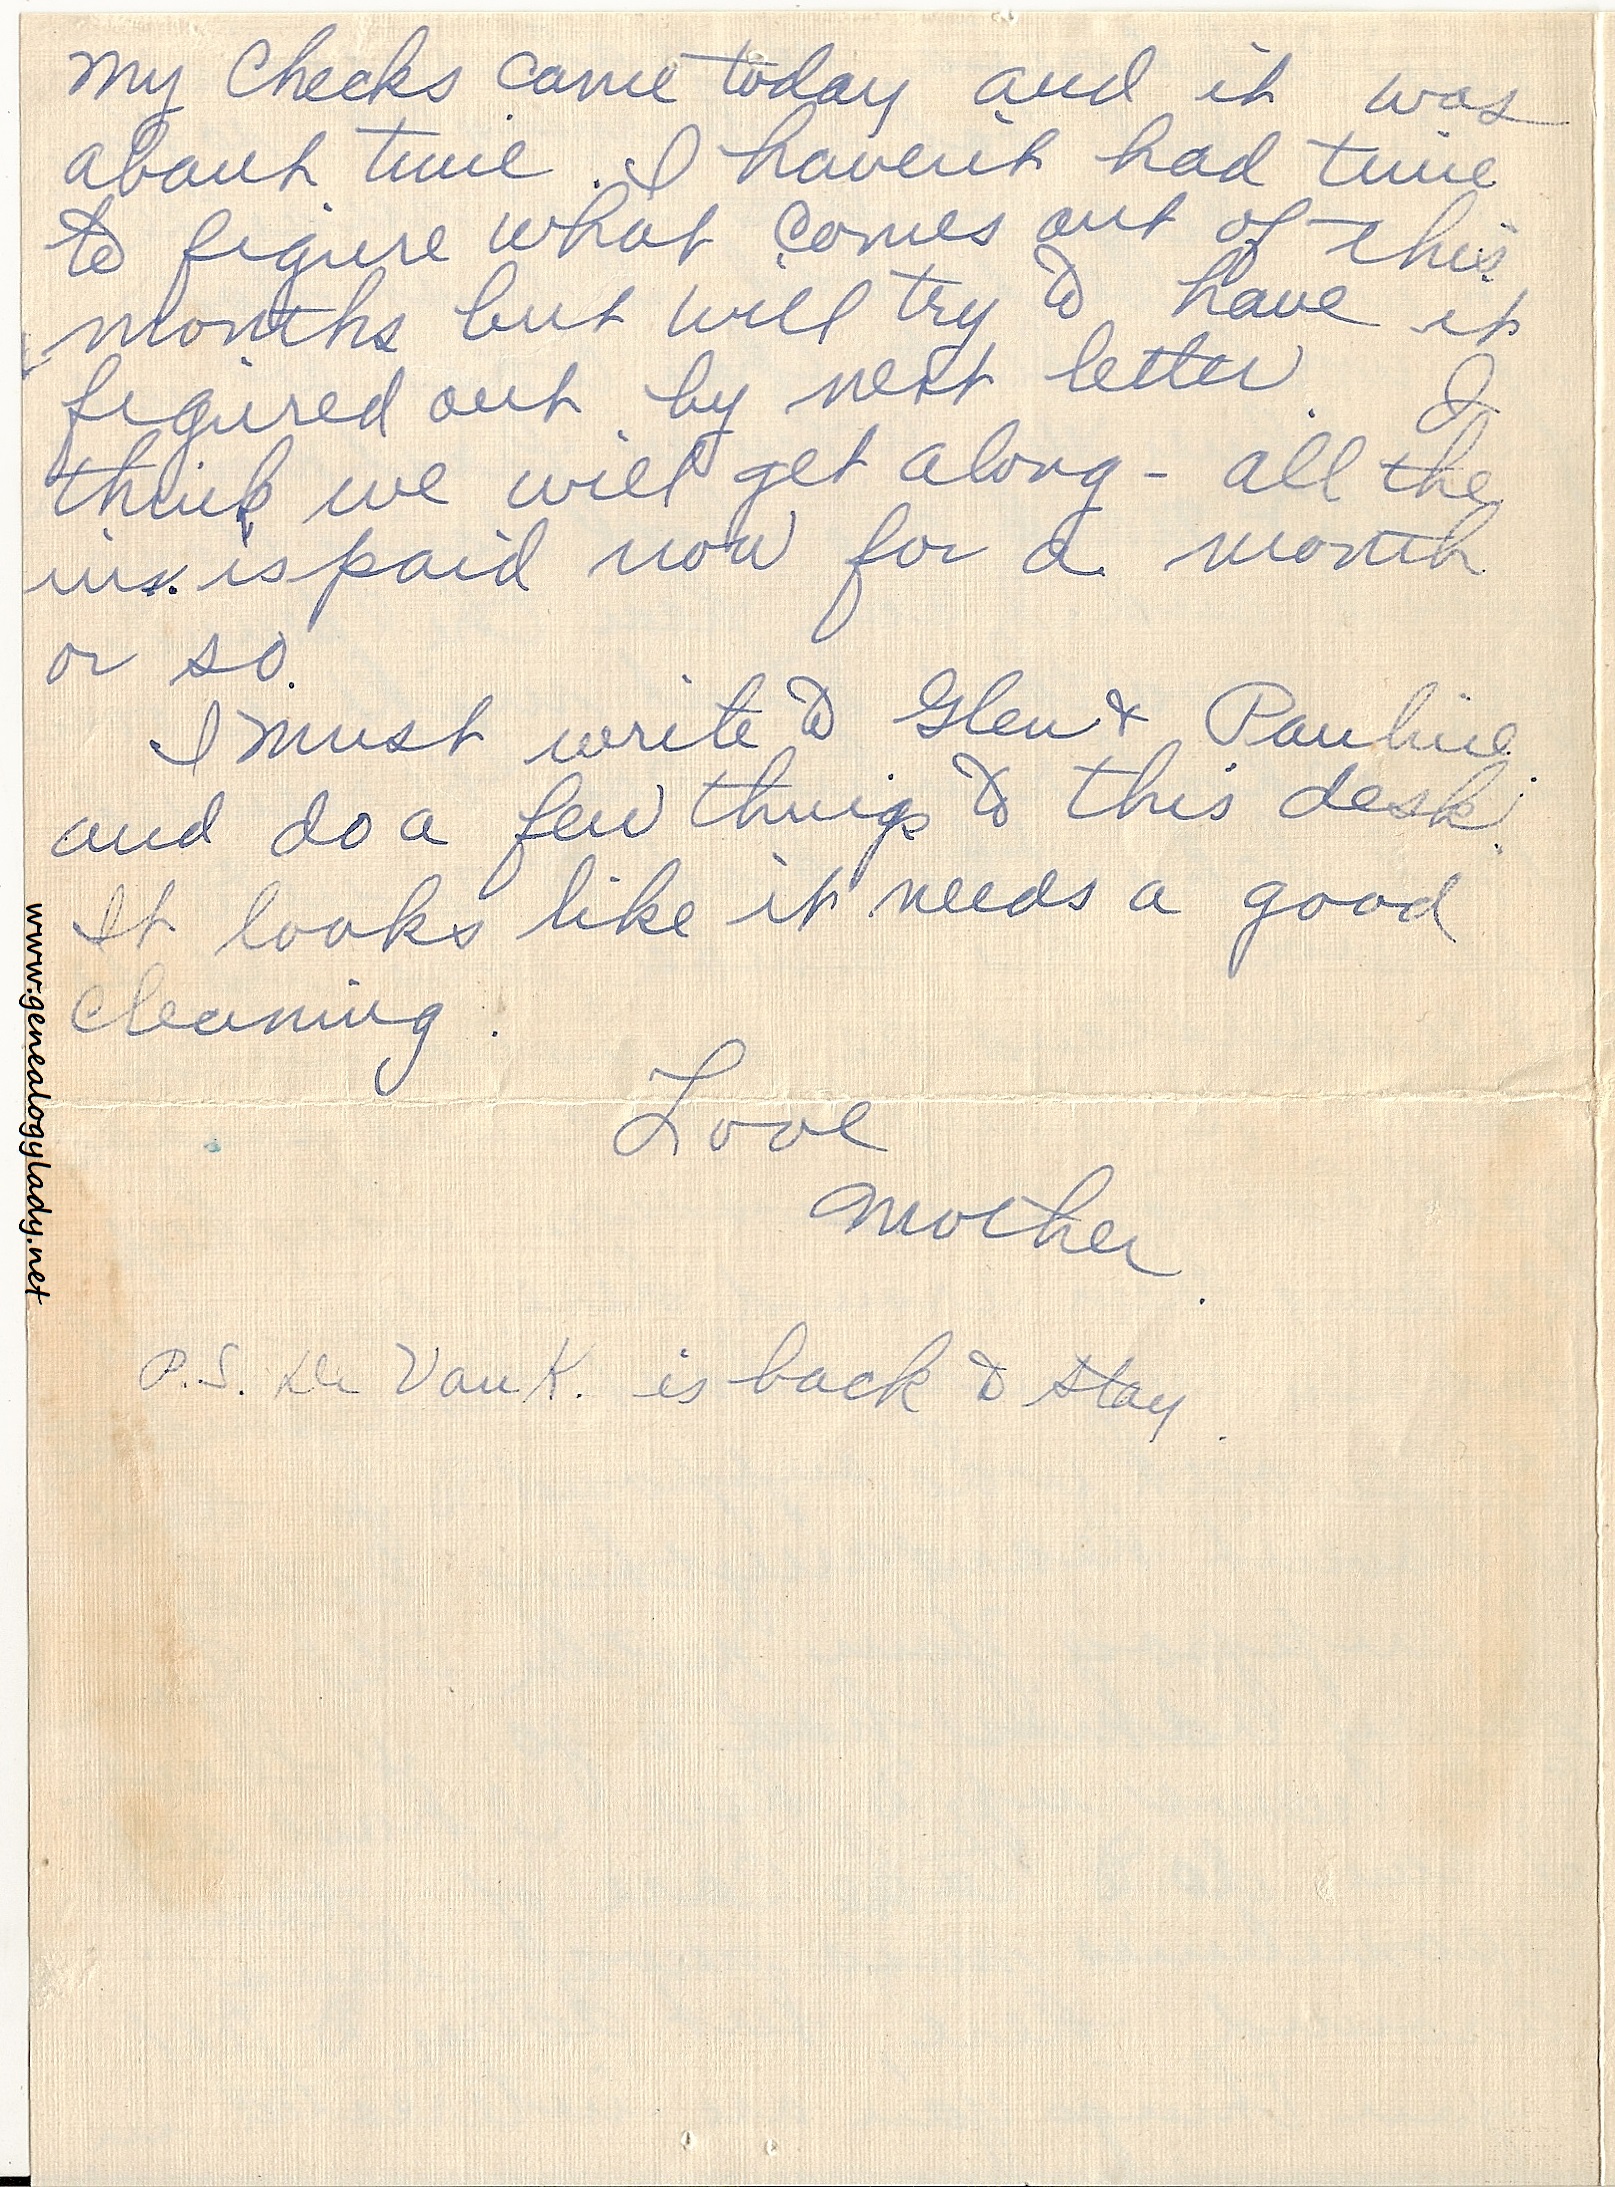 My checks came today and it was
about time. I haven't had time
to figure what comes out of this
months but will try to have it
figured out by next letter. I
think we will get along - all the
ins. is paid now for a month
or so.
I must write to Glen & Pauline
and do a few things to this desk.
It looks like it needs a good
cleaning.
Love
Mother.
P.S. Dr Van K. is back to stay.
www.genealogylady.net